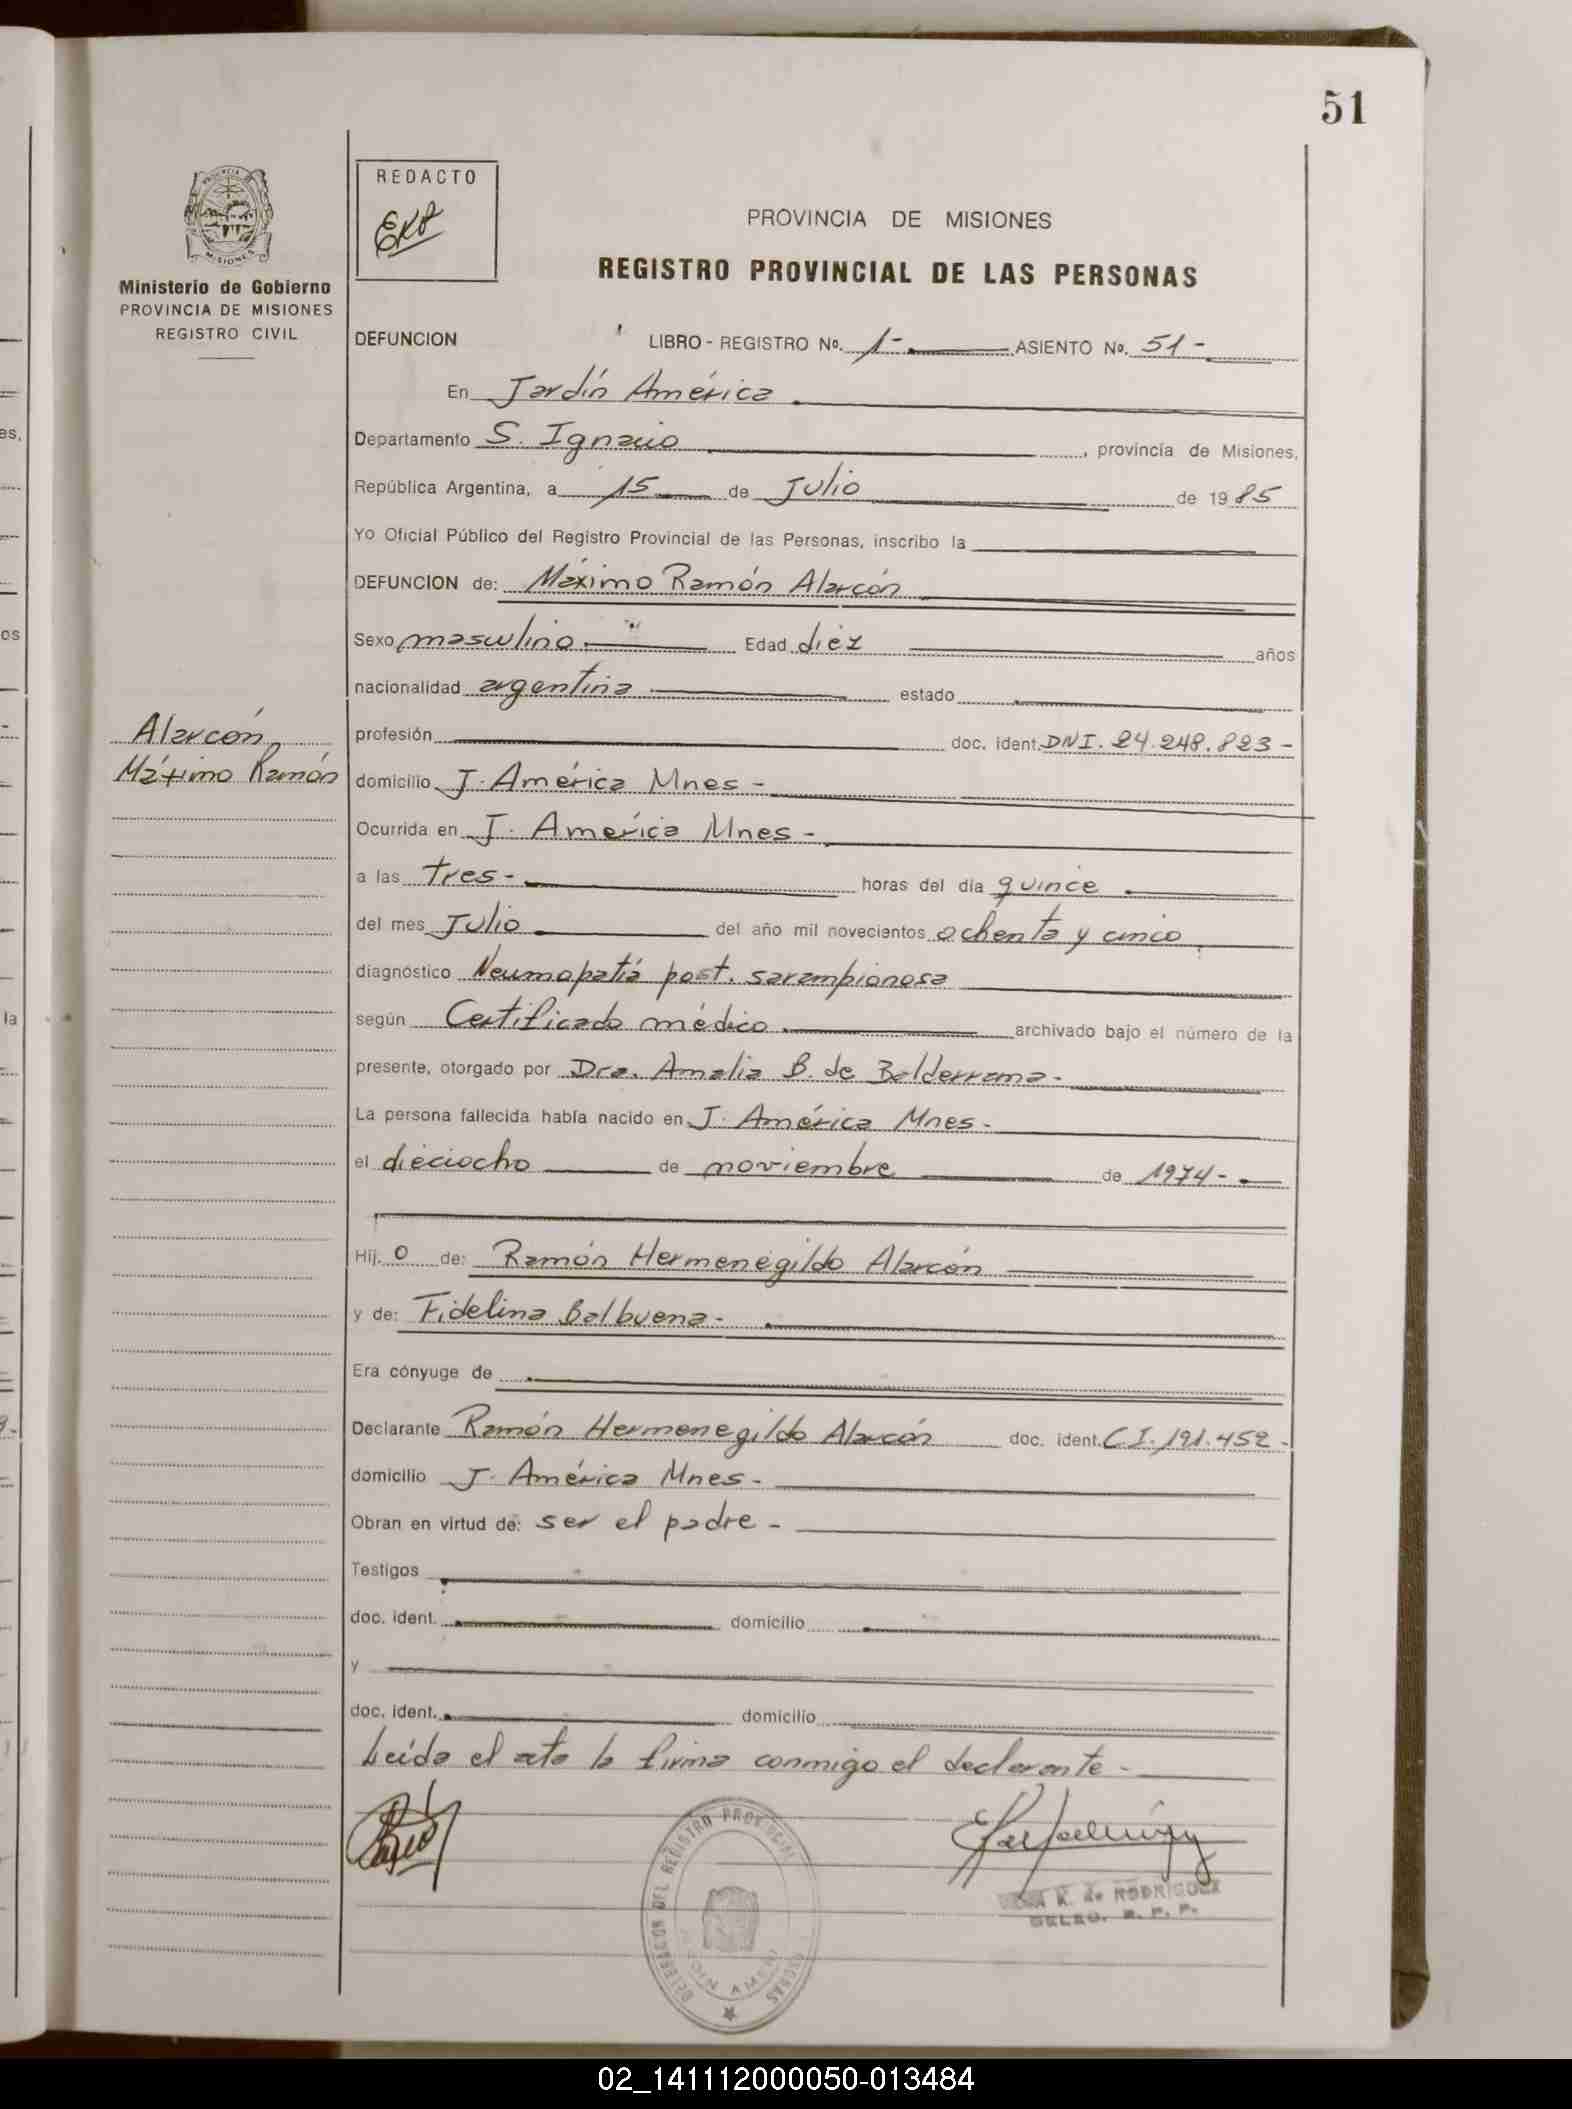 51
REDACTO
PROVINCIA DE MISIONES
REGISTRO PROVINCIAL DE LAS PERSONAS
Ministerio de Gobierno
PROVINCIA DE MISIONES
REGISTRO CIVIL
DEFUNCION LIBRO - REGISTRO Nº. 1- ASIENTO Nº. 51-
En Jardín América
Departamento S. Ignacio, provincia de Misiones,
República Argentina, a 15 de Julio de 1985
Yo Oficial Público del Registro Provincial de las Personas, inscribo la
DEFUNCION de: Máximo Ramón Alarcón
Sexo masculino Edad diéz años
nacionalidad argentina estado
Alarcón
Máximo Ramón
profesión doc. ident. DNI. 24.248.823-
domicilio J. América Mnes-
Ocurrida en J. América Mnes-
a las tres- horas del día quince
del mes Julio del año mil novecientos ochenta y cinco
diagnóstico Neumopatía post. sarampionosa
según Certificado médico archivado bajo el número de la
presente, otorgado por Dra. Amalia B. de Balderrama-
La persona fallecida había nacido en J. América Mnes-
el dieciocho de noviembre de 1974-
Hij o de: Ramón Hermenegildo Alarcón
y de: Fidelina Balbuena-
Era cónyuge de
Declarante Ramón Hermenegildo Alarcón doc. ident. C I. 191.452-
domicilio J. América Mnes-
Obran en virtud de: ser el padre-
Testigos
doc. ident. domicilio
y
doc. ident. domicilio
Leída el acta la firma conmigo el declarante-
DELEGACION DEL REGISTRO PROVINCIAL
K. de RODRIGUEZ
DELEG. R. P. P.
02_141112000050-013484